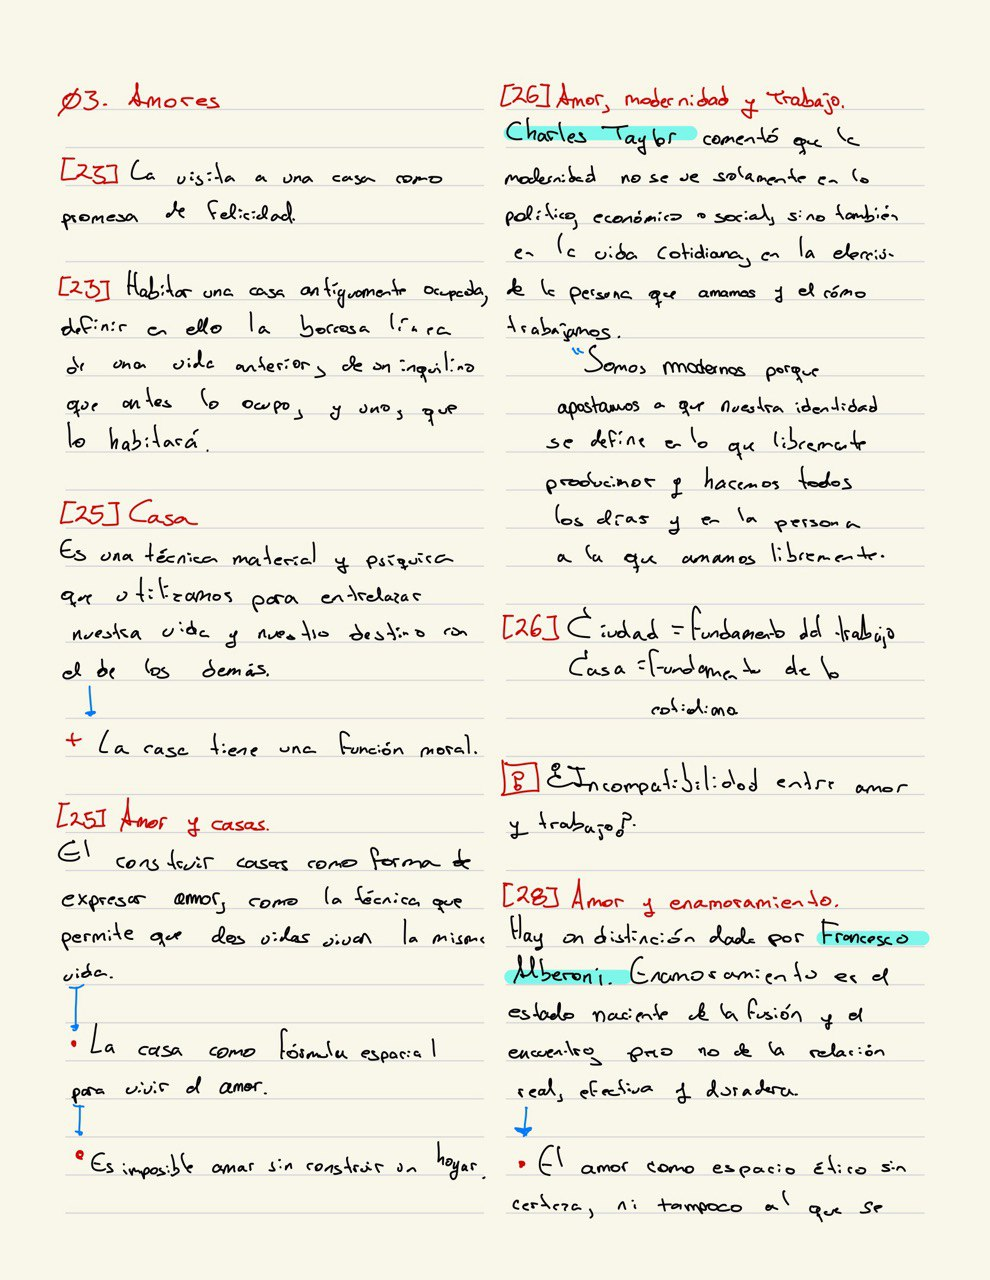 03. Amores
[23] La visita a una casa como
promesa de felicidad.
[23] Habitar una casa antiguamente ocupada,
definir en ello la borrosa línea
de una vida anterior, de un inquilino
que antes lo ocupo, y uno, que
lo habitará.
[25] Casa
Es una técnica material y psíquica
que utilizamos para entrelazar
nuestra vida y nuestro destino con
el de los demás.
+ La casa tiene una función moral.
[25] Amor y casas.
El construir casas como forma de
expresar amor, como la técnica que
permite que dos vidas vivan la misma
vida.
• La casa como fórmula espacial
para vivir el amor.
• Es imposible amar sin construir un hogar.
[26] Amor, modernidad y trabajo.
Charles Taylor comentó que la
modernidad no se ve solamente en lo
político, económico o social, sino también
en la vida cotidiana, en la elección
de la persona que amamos y el cómo
trabajamos.
"Somos modernos porque
apostamos a que nuestra identidad
se define en lo que libremente
producimos y hacemos todos
los días y en la persona
a la que amamos libremente.
[26] Ciudad = fundamento del trabajo
Casa = fundamento de lo
cotidiano
[?] ¿Incompatibilidad entre amor
y trabajo?.
[28] Amor y enamoramiento.
Hay un distinción dada por Francesco
Alberoni. Enamoramiento es el
estado naciente de la fusión y el
encuentro, pero no de la relación
real, efectiva y duradera.
• El amor como espacio ético sin
certeza, ni tampoco al que se